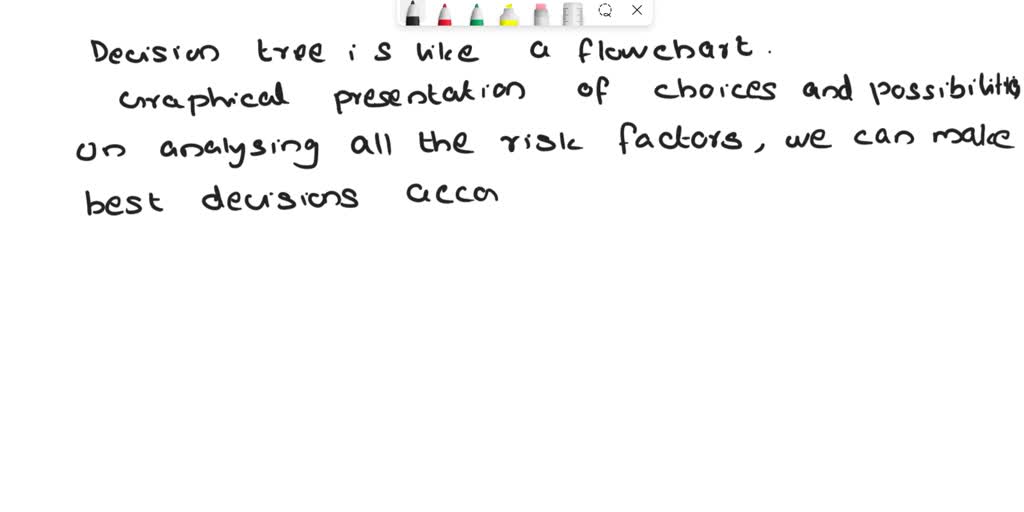 Decision tree is like a flowchart.
Graphical presentation of choices and possibilities
on analysing all the risk factors, we can make
best decisions acco